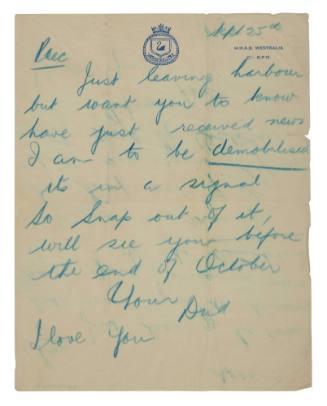 Sept 25th
H.M.A.S. WESTRALIA
G.P.O.
Just leaving harbour
but want you to know
have just received news
I am to be demobilised
its in a signal
So Snap out of it,
will see you before
the end of October
Your Dad
I love You